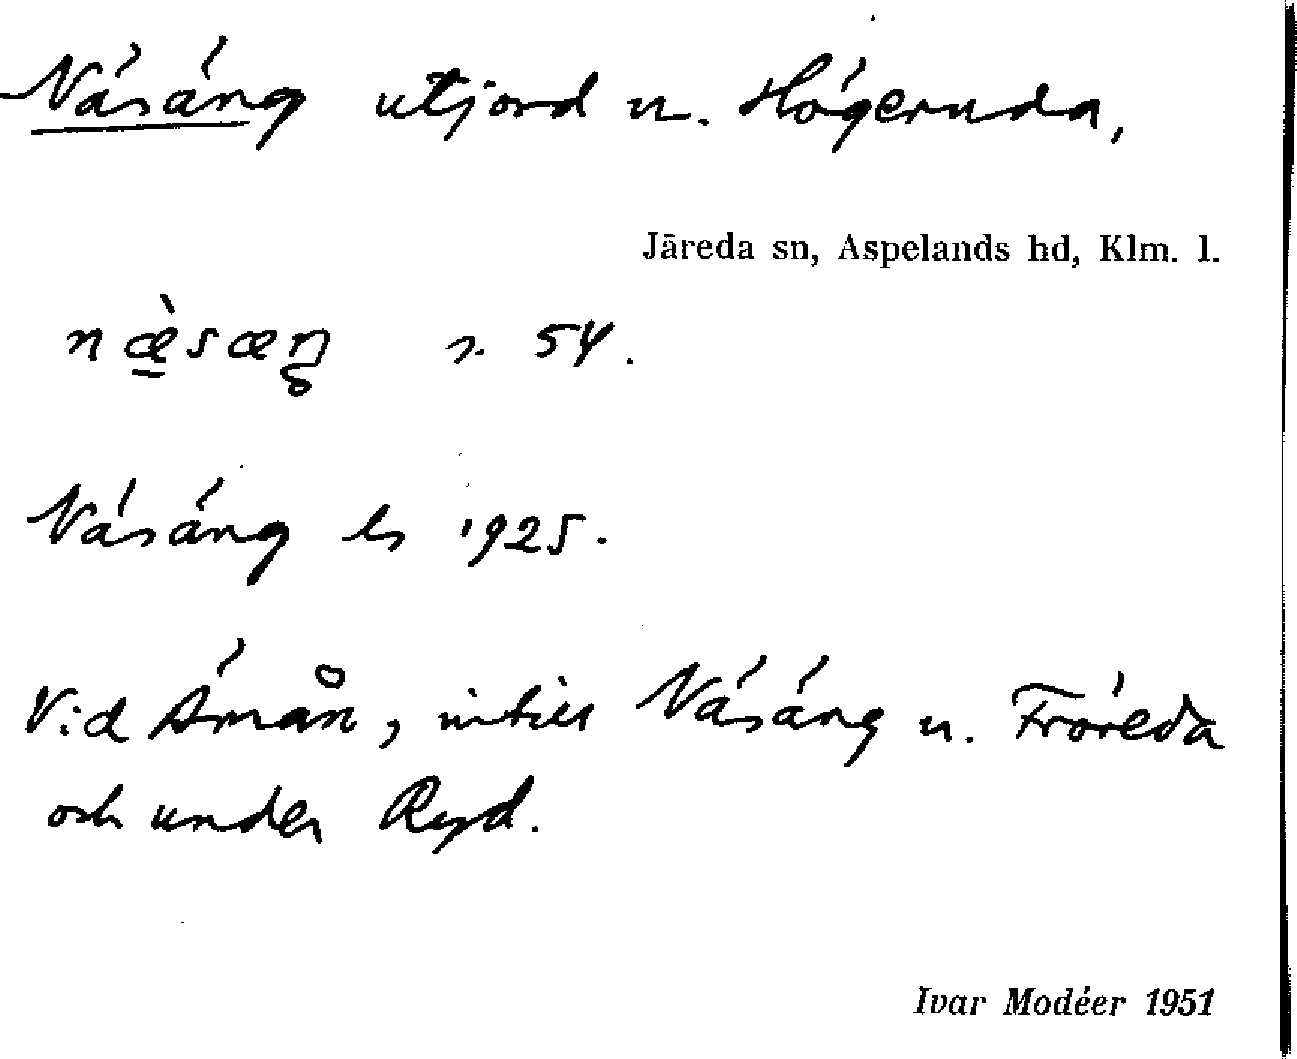 Näsäng utjord u. Högeruda,
Järeda sn, Aspelands hd, Klm. l.
næ̀sæŋ s. 54.
Näsäng ls 1925.
Vid Ämån, intill Näsäng u. Fröreda
och under Ryd.
Ivar Modéer 1951